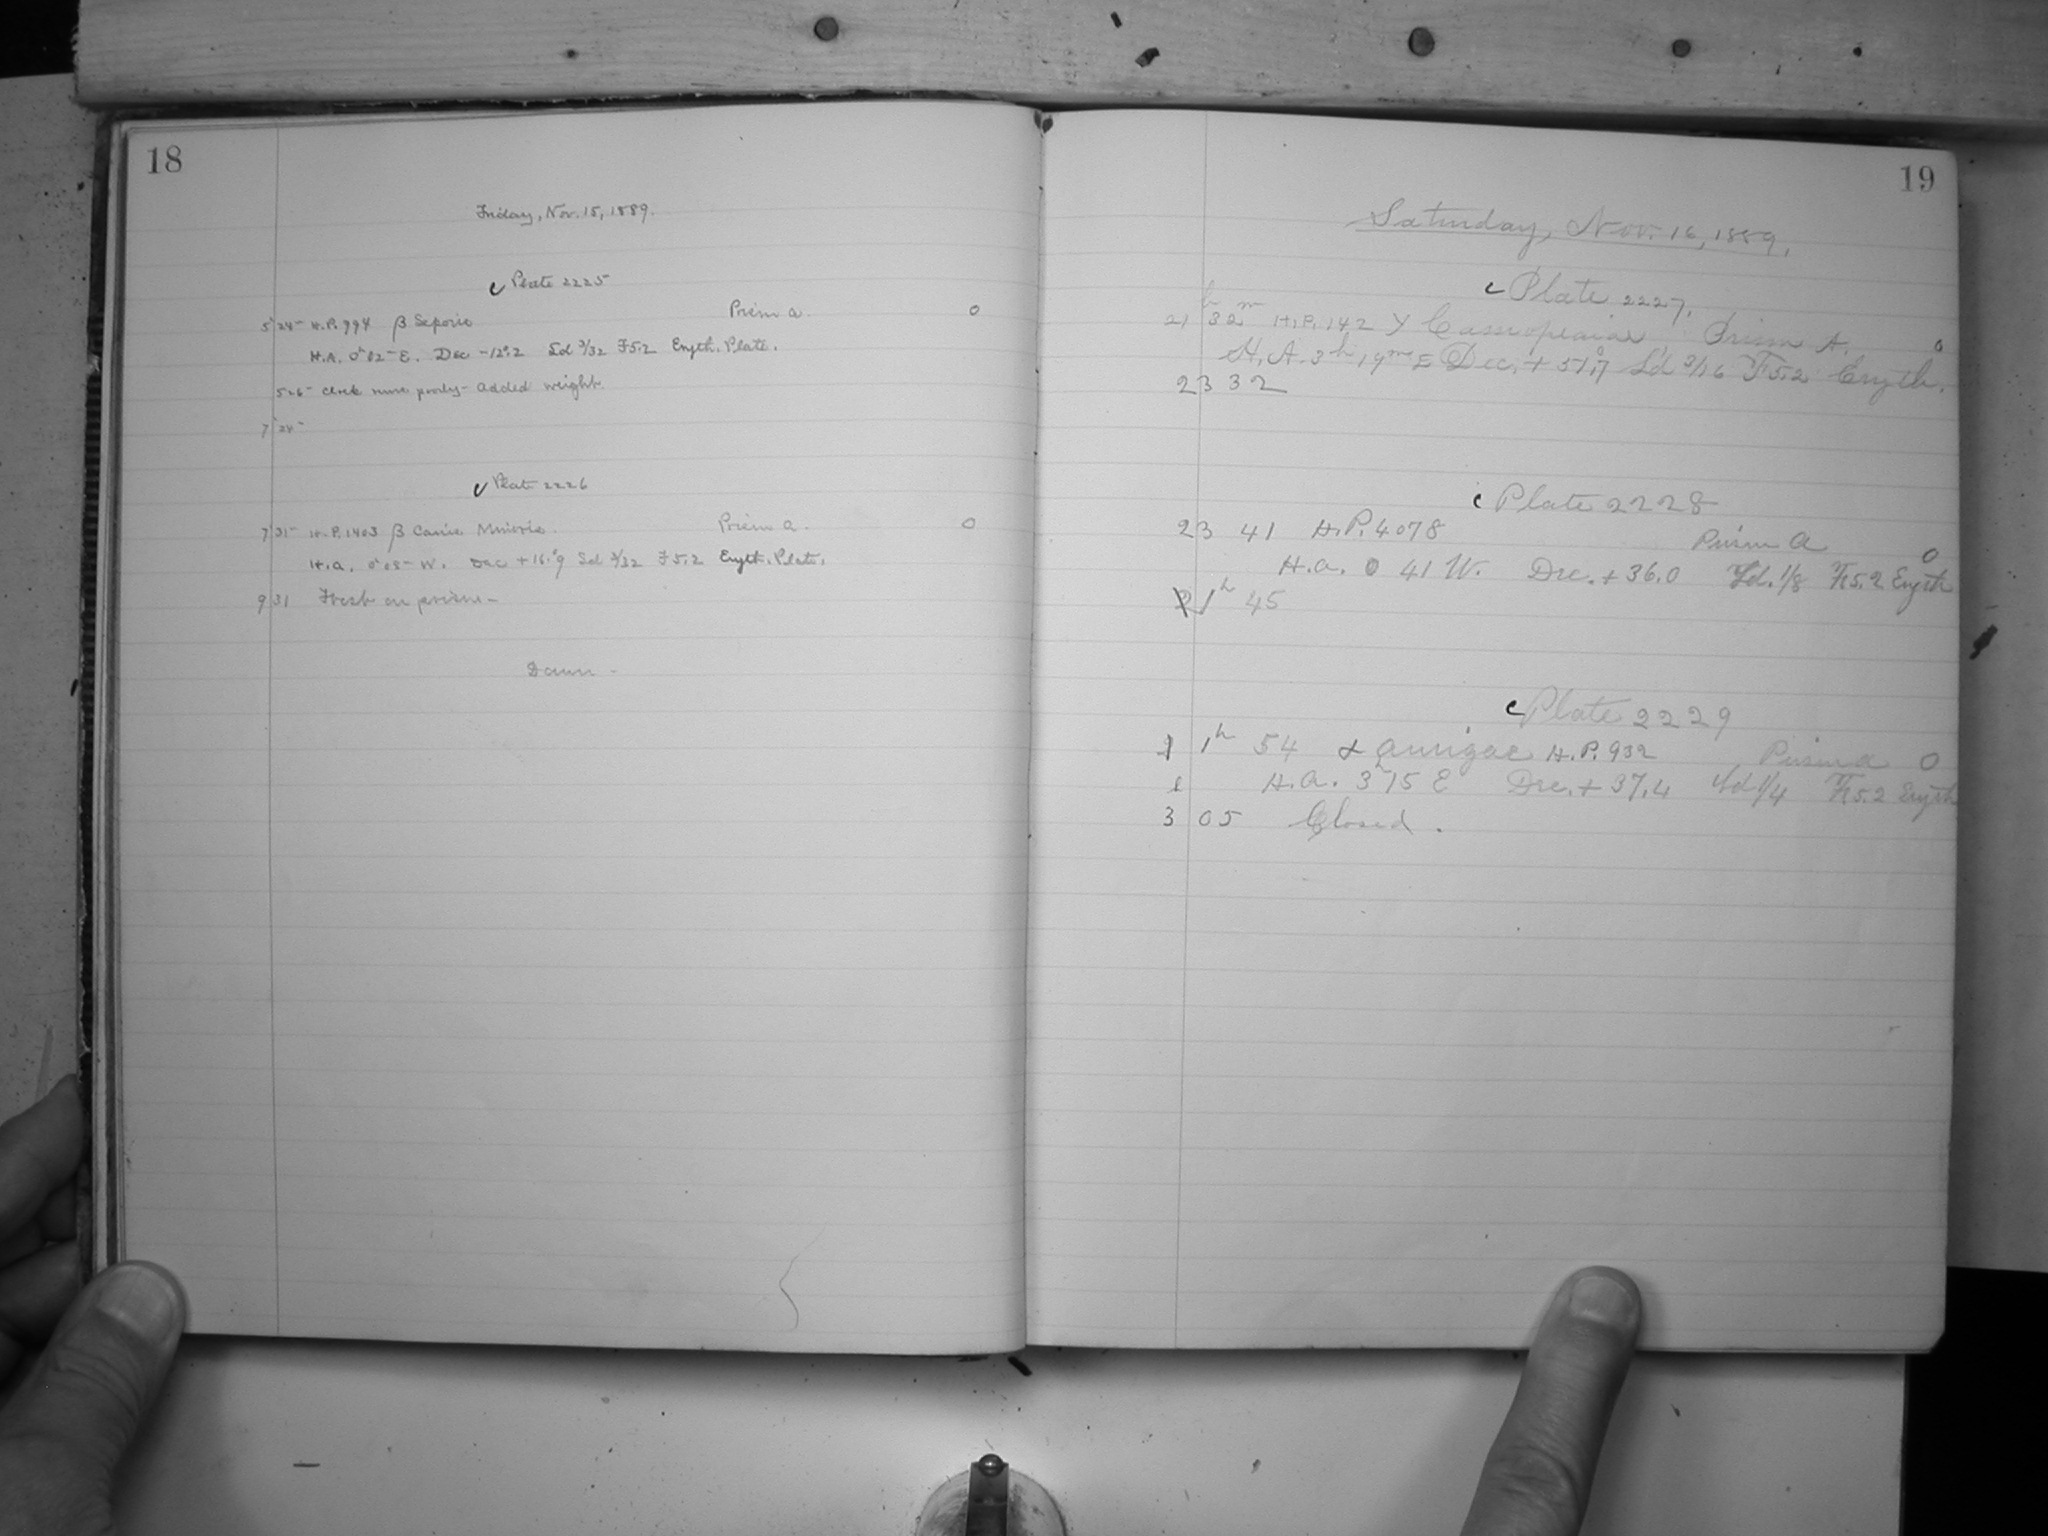 18
Friday, Nov. 15, 1889.
c Plate 2225
5 24 H.P. 994 β Leporis Prism a. 0
H.A. 0h 02m E. Dec -12°.2 Sd 3/32 F5.2 Eryth. Plate.
5 26 Clock runs poorly - Added weight.
7 24
c Plate 2226
7 31 H.P. 1403 β Canis Minoris. Prism a. 0
H.A. 0h 05m W. Dec +16°.9 Sd 3/32 F5.2 Eryth. Plate.
9 31 Frost on prism -
Dawn -
19
Saturday, Nov. 16, 1889.
c Plate 2227.
21h 32m H.P. 142 γ Cassiopeaiae Prism A. 0
H.A. 3h 19m E Dec. + 51°.7 Sd 3/16 F5.2 Eryth.
23 32
c Plate 2228
23 41 H.P. 4078 Prism A 0
H.A. 0 41 W. Dec. + 36.0 Sd. 1/8 F5.2 Eryth
1h 45
c Plate 2229
1h 54 α Aurigae H.P. 932 Prism a 0
H.A. 3h 15 E Dec. + 37.4 Sd 1/4 F5.2 Eryth
3 05 Closed.